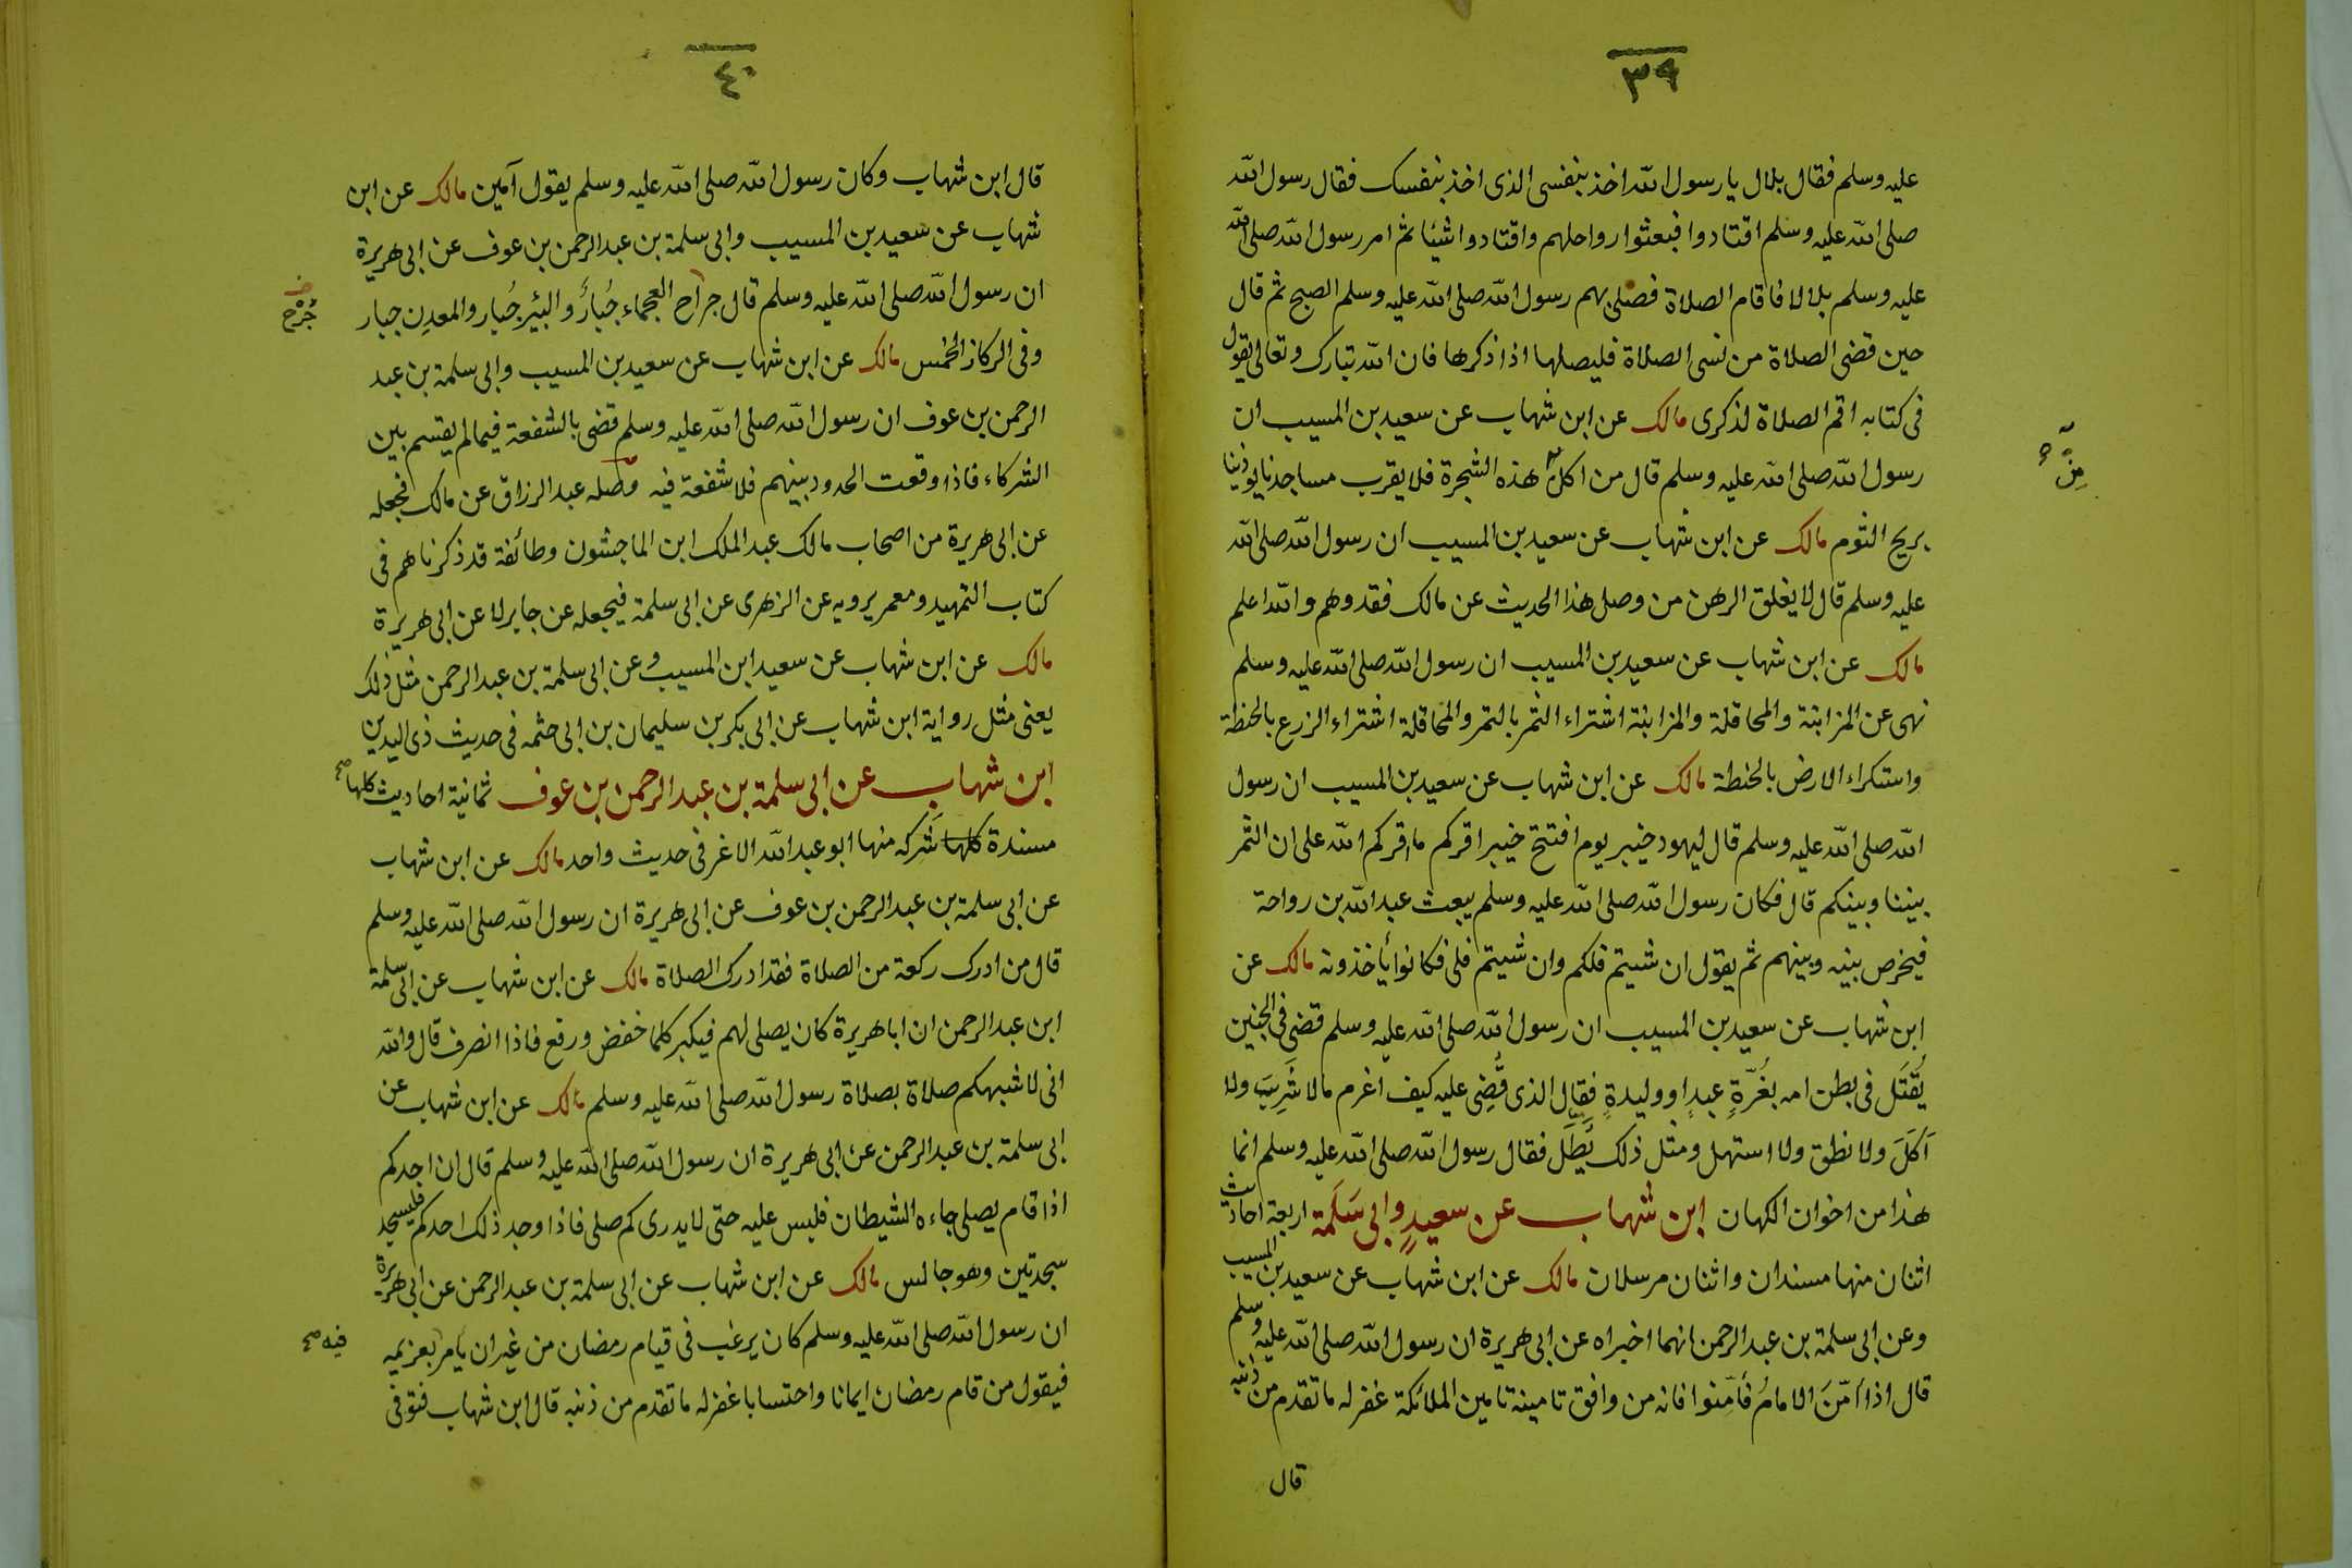 ٣٩
عليه وسلم فقال بلال يا رسول الله اخذ بنفسى الذى اخذ بنفسك فقال رسول الله
صلى الله عليه وسلم اقتادوا فبعثوا رواحلهم واقتادوا شيئا ثم امر رسول الله صلى الله
عليه وسلم بلالا فاقام الصلاة فصلى بهم رسول الله صلى الله عليه وسلم الصبح ثم قال
حين قضى الصلاة من نسى الصلاة فليصلها اذا ذكرها فان الله تبارك وتعالى يقول
فى كتابه اقم الصلاة لذكرى مالك عن ابن شهاب عن سعيد بن المسيب ان
رسول الله صلى الله عليه وسلم قال من اكل هذه الشجرة فلا يقرب مساجدنا يوذينا
مِن
بريح الثوم مالك عن ابن شهاب عن سعيد بن المسيب ان رسول الله صلى الله
عليه وسلم قال لا يغلق الرهن من وصل هذا الحديث عن مالك فقد وهم والله اعلم
مالك عن ابن شهاب عن سعيد بن المسيب ان رسول الله صلى الله عليه وسلم
نهى عن المزابنة والمحاقلة والمزابنة اشتراء الثمر بالتمر والمحاقلة اشتراء الزرع بالحنطة
واستكراء الارض بالحنطة مالك عن ابن شهاب عن سعيد بن المسيب ان رسول
الله صلى الله عليه وسلم قال ليهود خيبر يوم افتتح خيبر اقركم ما اقركم الله على ان الثمر
بيننا وبينكم قال فكان رسول الله صلى الله عليه وسلم يبعث عبد الله بن رواحة
فيخرص بينه وبينهم ثم يقول ان شيتم فلكم وان شيتم فلى فكانوا يأخذونه مالك عن
ابن شهاب عن سعيد بن المسيب ان رسول الله صلى الله عليه وسلم قضى فى الجنين
يُقْتَل فى بطن امه بغُرّةٍ عبدٍ او وليدةٍ فقال الذى قُضِى عليه كيف اغرم مالا شَرِبَ ولا
اَكَلَ ولا نطق ولا استهل ومثل ذلك يُطَلّ فقال رسول الله صلى الله عليه وسلم انما
هذا من اخوان الكهان ابن شهاب عن سعيدٍ وابى سَلَمَة اربعة احاديث
اثنان منها مسندان واثنان مرسلان مالك عن ابن شهاب عن سعيد بن المسيب
وعن ابى سلمة بن عبد الرحمن انهما اخبراه عن ابى هريرة ان رسول الله صلى الله عليه وسلم
قال اذا اَمّنَ الامامُ فَأَمِّنوا فانه من وافق تامينه تامين الملائكة غفر له ما تقدم من ذنبه
قال
٤٠
قال ابن شهاب وكان رسول الله صلى الله عليه وسلم يقول آمين مالك عن ابن
شهاب عن سعيد بن المسيب وابى سلمة بن عبد الرحمن بن عوف عن ابى هريرة
ان رسول الله صلى الله عليه وسلم قال جراح العجماء جُبارٌ والبئر جُبار والمعدِن جبار
جُرْح
وفى الركاز الخمس مالك عن ابن شهاب عن سعيد بن المسيب وابى سلمة بن عبد
الرحمن بن عوف ان رسول الله صلى الله عليه وسلم قضى بالشفعة فيما لم يقسم بين
الشركاء فاذا وقعت الحدود بينهم فلا شفعة فيه وصله عبد الرزاق عن مالك فجعله
عن ابى هريرة من اصحاب مالك عبد الملك ابن الماجشون وطائفة قد ذكرناهم فى
كتاب التمهيد ومعمر يرويه عن الزهرى عن ابى سلمة فيجعله عن جابر لا عن ابى هريرة
مالك عن ابن شهاب عن سعيد ابن المسيب وعن ابى سلمة بن عبد الرحمن مثل ذلك
يعنى مثل رواية ابن شهاب عن ابى بكر بن سليمان بن ابى حثمه فى حديث ذى اليدين
ابن شهاب عن ابى سلمة بن عبد الرحمن بن عوف ثمانية احاديث كلها صح
مسندة كلها شَركه منها ابو عبد الله الاغر فى حديث واحد مالك عن ابن شهاب
عن ابى سلمة بن عبد الرحمن بن عوف عن ابى هريرة ان رسول الله صلى الله عليه وسلم
قال من ادرك ركعة من الصلاة فقد ادرك الصلاة مالك عن ابن شهاب عن ابى سلمة
ابن عبد الرحمن ان ابا هريرة كان يصلى لهم فيكبر كلما خفض ورفع فاذا انصرف قال والله
انى لاشبهكم صلاة بصلاة رسول الله صلى الله عليه وسلم مالك عن ابن شهاب عن
ابى سلمة بن عبد الرحمن عن ابى هريرة ان رسول الله صلى الله عليه وسلم قال ان احدكم
اذا قام يصلى جاءه الشيطان فلبس عليه حتى لا يدرى كم صلى فاذا وجد ذلك احدكم فليسجد
سجدتين وهو جالس مالك عن ابن شهاب عن ابى سلمة بن عبد الرحمن عن ابى هريرة
ان رسول الله صلى الله عليه وسلم كان يرغب فى قيام رمضان من غير ان يأمر بعزيمه
فيه صح
فيقول من قام رمضان ايمانا واحتسابا غفر له ما تقدم من ذنبه قال ابن شهاب فتوفى